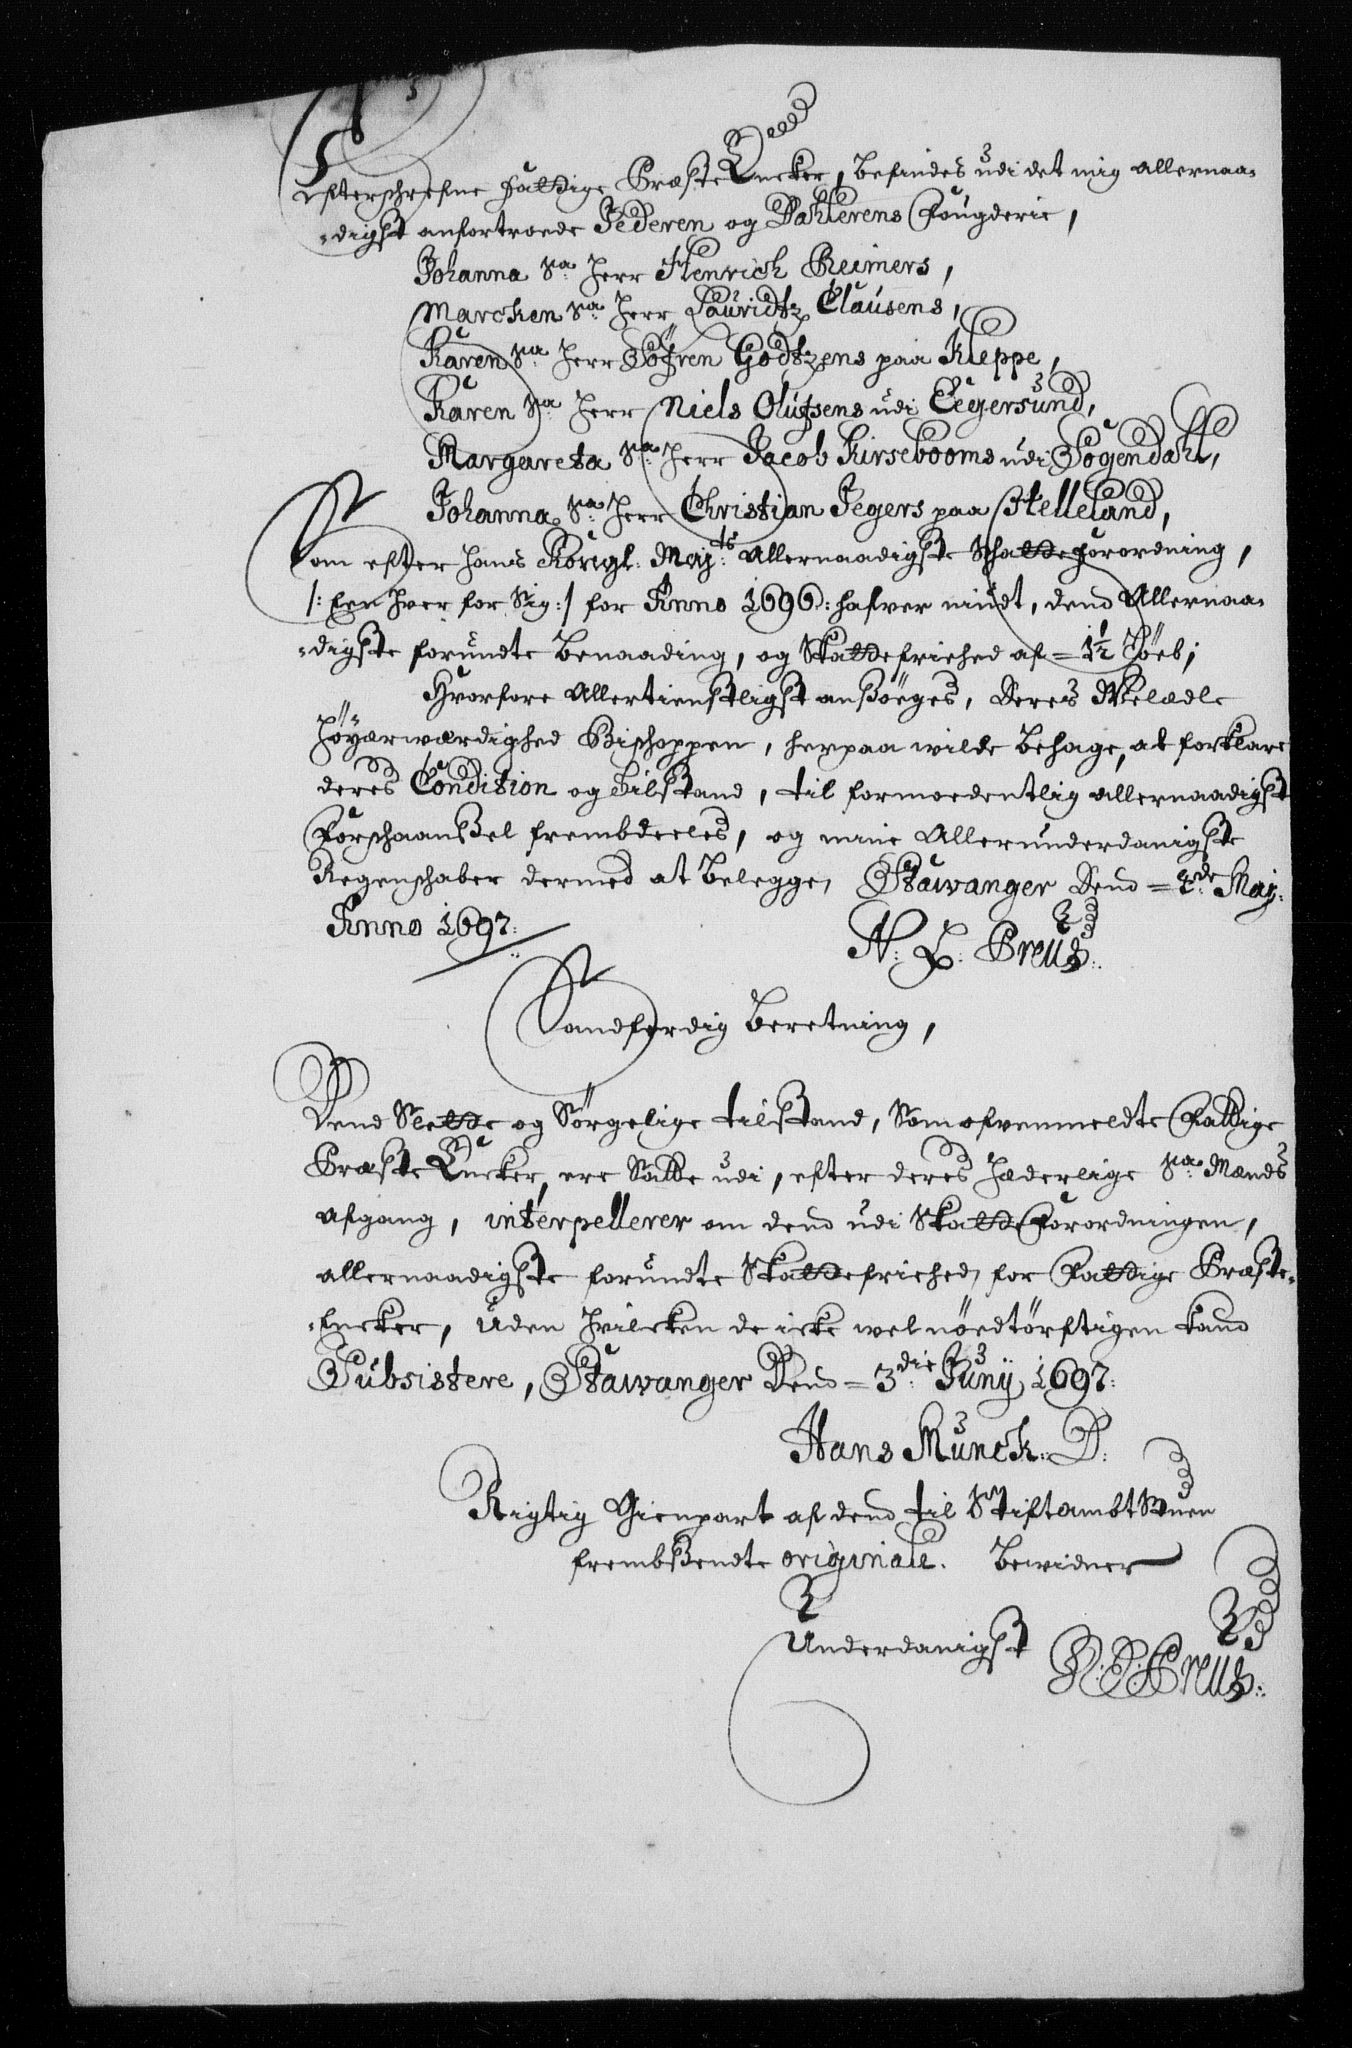 Efterschrefne fattige Præste Encker, befindes udi det mig allernaa-
digst anfortroede Jederen og Dahlerens Fougderie,
Johanna Sa: Herr Henrich Reimers,
Marchen Sa: Herr Lauridtz Clausens,
Karen Sa: Herr Söfren Godtzens paa Kleppe,
Karen Sa: Herr Niels Olufsens udi Eegersund,
Margareta Sa: Herr Jacob Kirsebooms udi Sogendahl,
Johanna Sa: Herr Christian Jegers paa Helleland,
Som efter Hans Kongl: Maj:ts Allernaadigste Schatte forordning,
/: Een hver for Sig :/ for Anno 1696: hafver nüdt, dend Allernaa-
digste forundte benaading, og Skattefriehed af = 1½ Höeb;
Hvorfore Allertienstligst ansöeges, Deres Welædle
Höyærwærdighed Bischoppen, herpaa wilde behage, at forklare
deres Condition og Tilstand, til formoedentlig allernaadigst
Forschaansel frembdeeles, og mine Allerunderdanigste
Regenschaber dermed at belegge, Stawanger Dend = 2de Maj:
Anno 1697:
N: L: Breus:
Sandferdig beretning,
Dend Slette og Sörgelige tilstand, Som ofvenmeldte Fattige
Præste Encker, ere Satte udi, efter deres Hæderlige Sa: Mænds
afgang, interpellerer om dend udi Skatte Forordningen,
allernaadigste forundte Skattefriehed, for Fattige Præste-
Encker, uden hvilcken de icke wel nöedtörftigen kand
Subsistere, Stawanger Dend = 3die Junij 1697:
Hans Munck: D:
Rigtig Gienpart af dend til Stiftambtstuen
frembsendte originale. bewidner
Underdanigst
Breus: